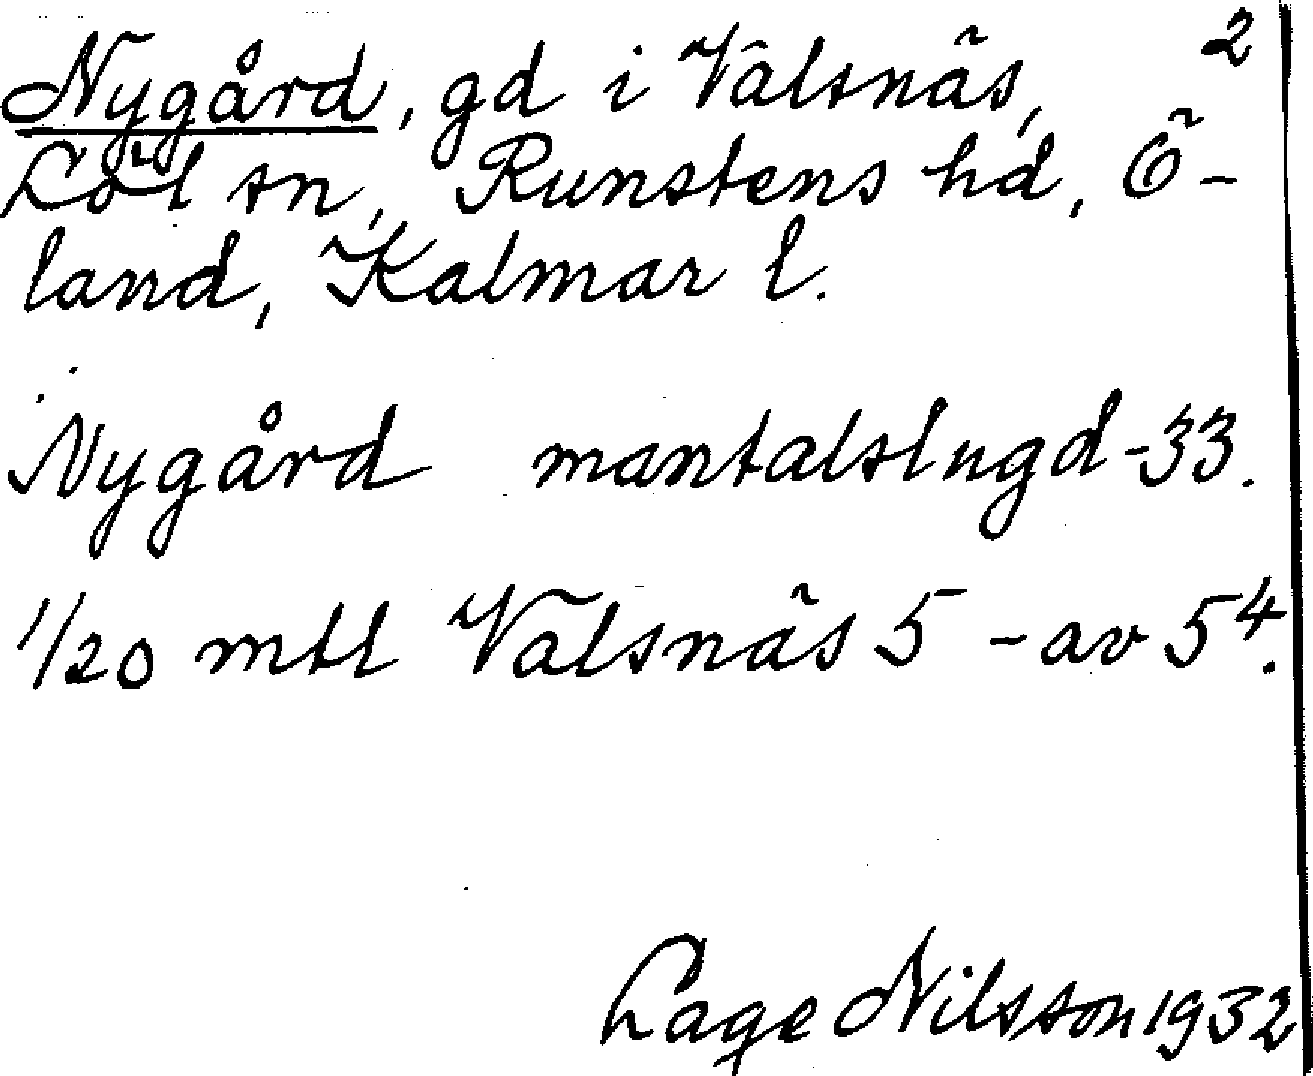 Nygård, gd i Valsnäs, 2
Löt sn, Runstens hd, Ö-
land, Kalmar l.
Nygård mantalslngd -33.
1/20 mtl Valsnäs 5 - av 5⁴.
Lage Nilsson 1932